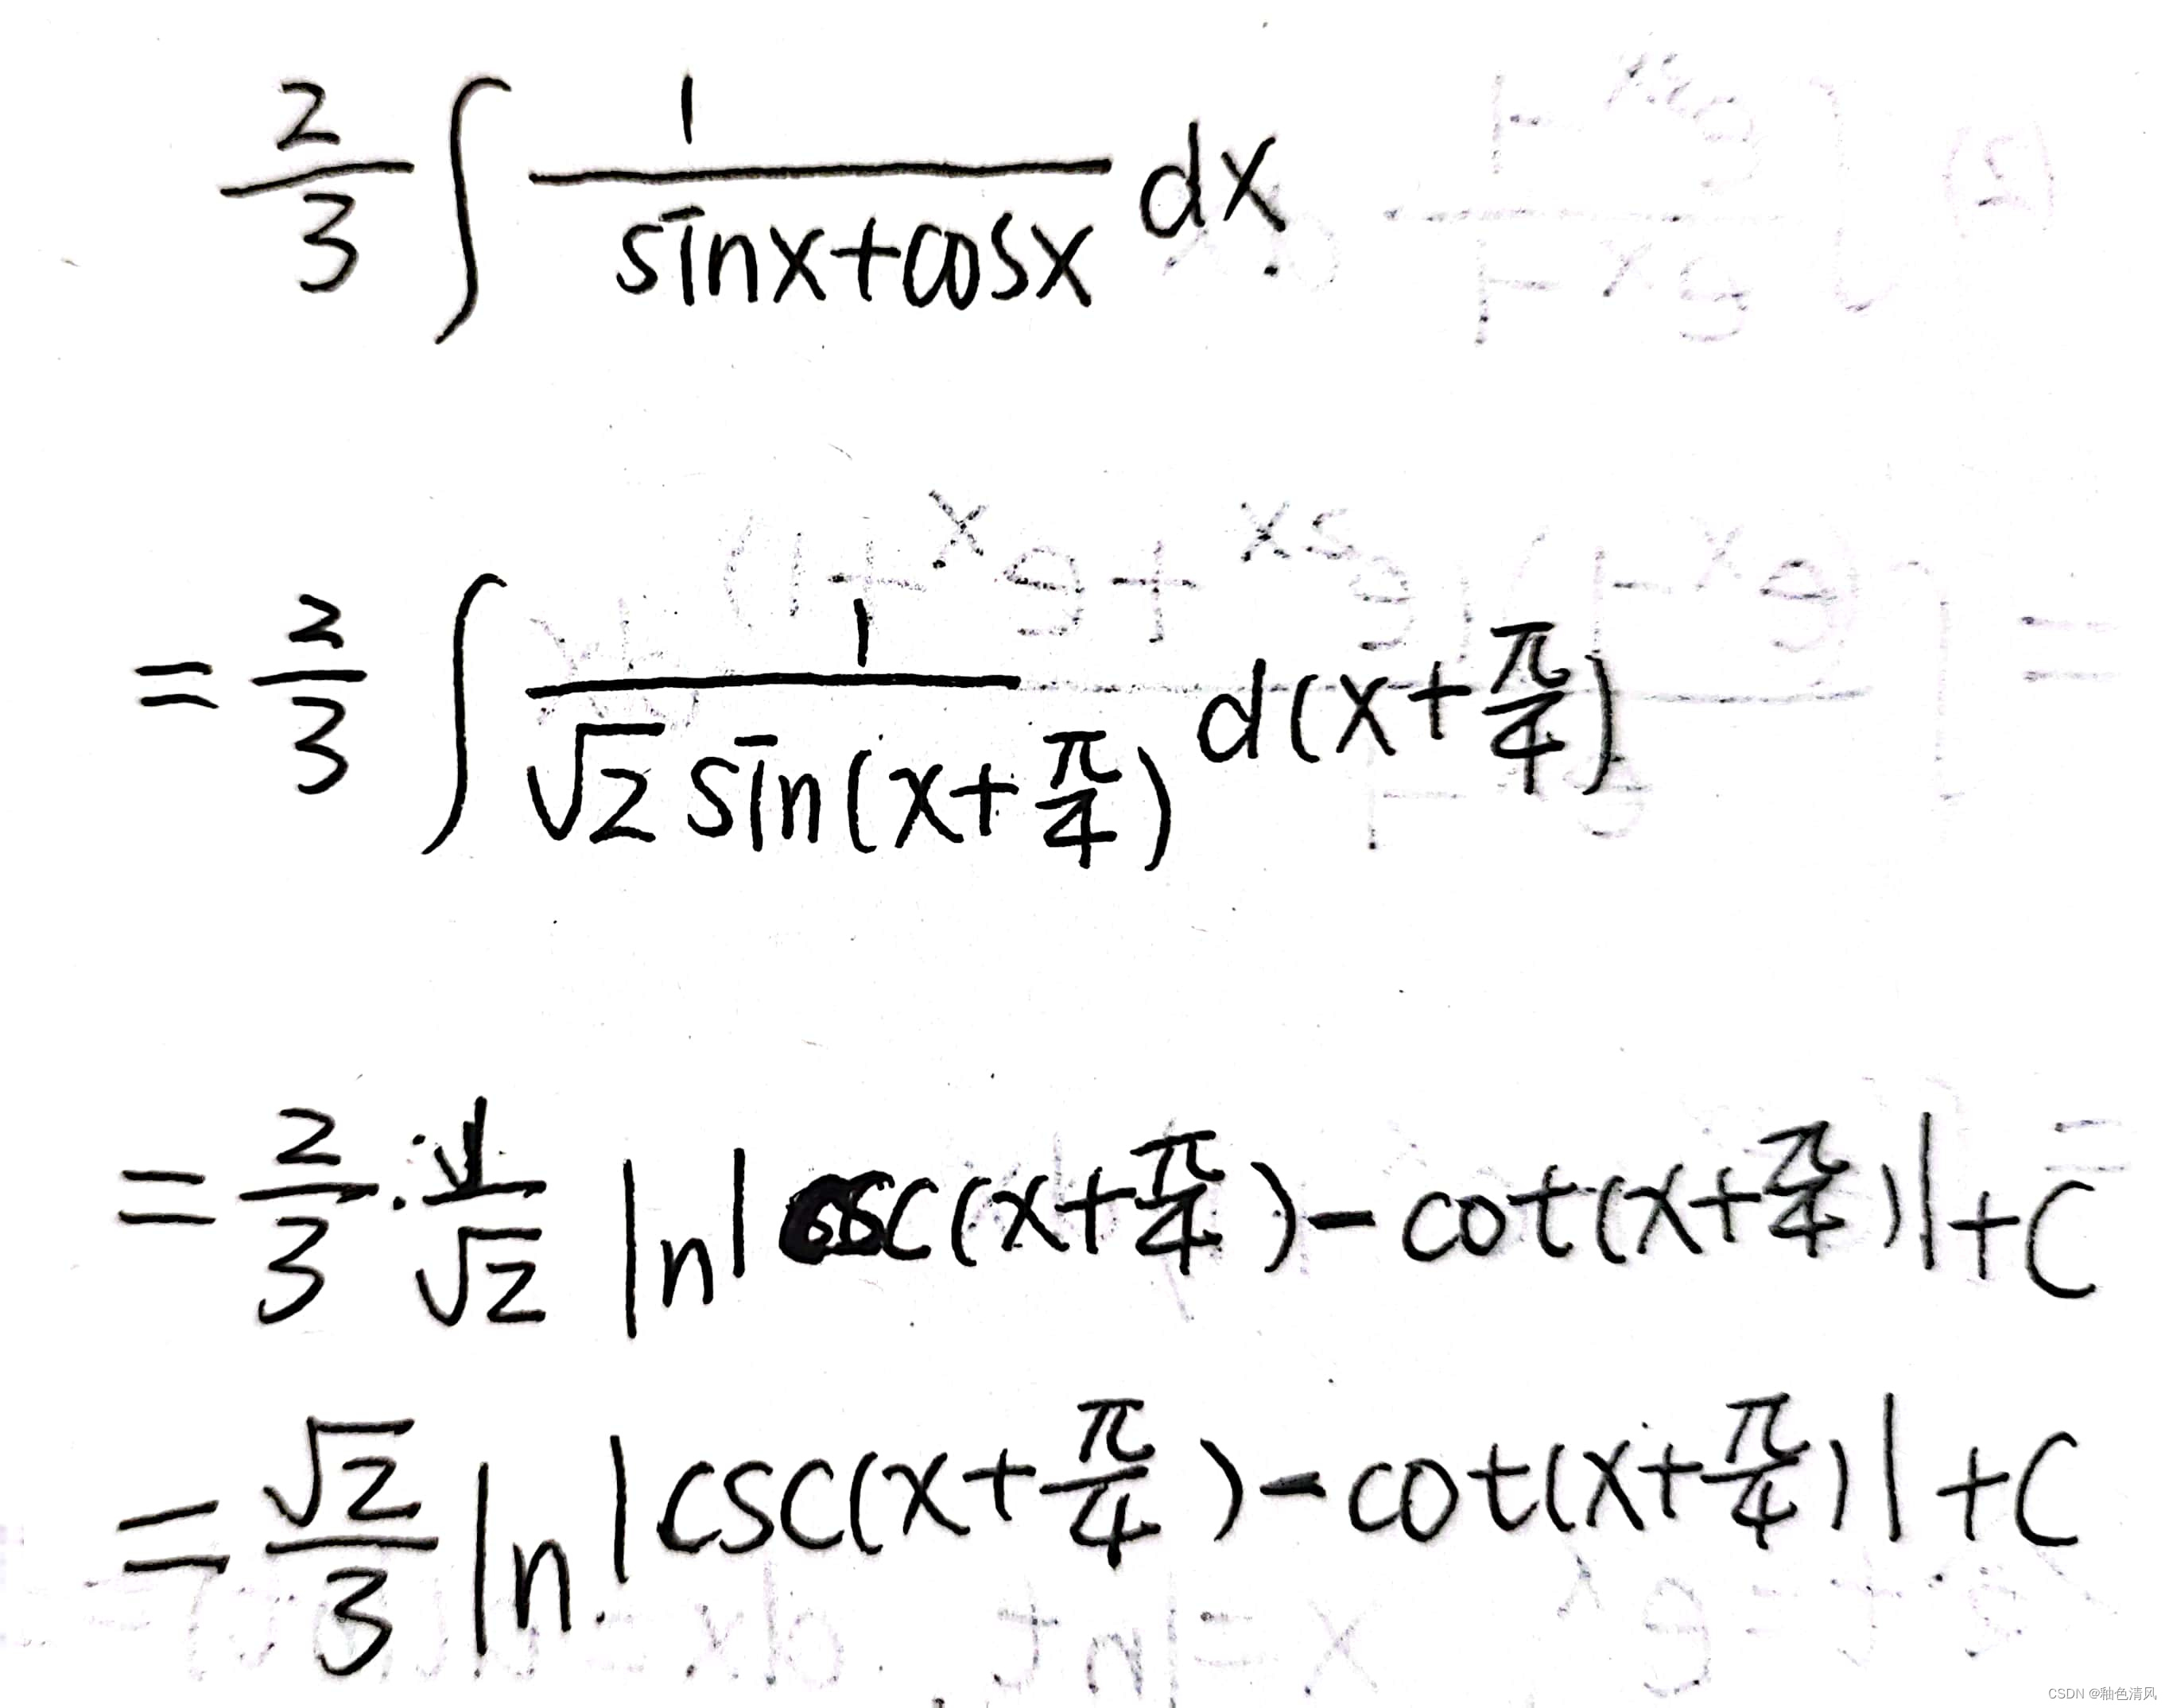 $\frac{2}{3}\int \frac{1}{\sin x+\cos x}dx$
$=\frac{2}{3}\int \frac{1}{\sqrt{2}\sin(x+\frac{\pi}{4})}d(x+\frac{\pi}{4})$
$=\frac{2}{3}\cdot\frac{1}{\sqrt{2}}\ln|\csc(x+\frac{\pi}{4})-\cot(x+\frac{\pi}{4})|+C$
$=\frac{\sqrt{2}}{3}\ln|\csc(x+\frac{\pi}{4})-\cot(x+\frac{\pi}{4})|+C$
CSDN @釉色清风